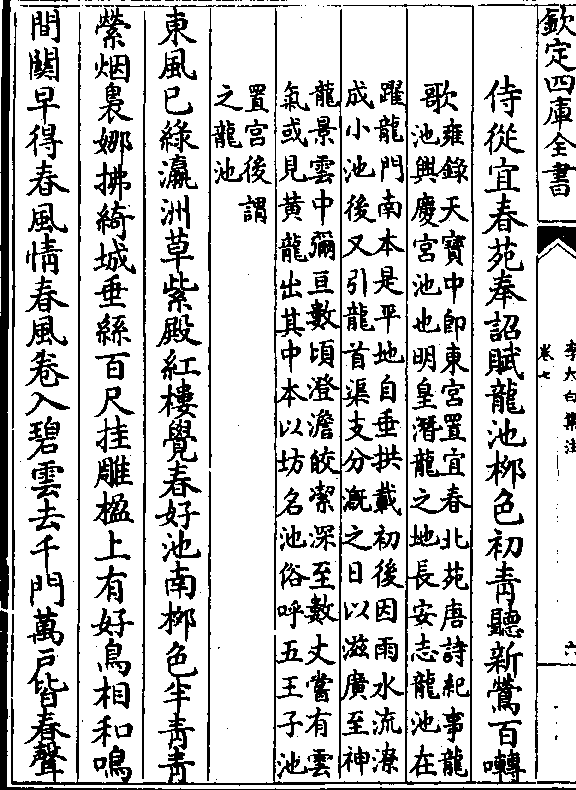 欽定四庫全書
李太白集注
卷七
六
侍從宜春苑奉詔賦龍池栁色初青聽新鶯百囀
歌
雍錄天寳中即東宫置宜春北苑唐詩紀事龍
池興慶宫池也明皇潛龍之地長安志龍池在
躍龍門南本是平地自垂拱載初後因雨水流潦
成小池後又引龍首渠支分溉之日以滋廣至神
龍景雲中彌亘數頃澄澹皎潔深至數丈嘗有雲
氣或見黄龍出其中本以坊名池俗呼五王子池
置宫後謂
之龍池
東風已綠瀛洲草紫殿紅樓覺春好池南栁色半青青
縈烟裊娜拂綺城垂絲百尺挂雕楹上有好鳥相和鳴
間關早得春風情春風卷入碧雲去千門萬户皆春聲